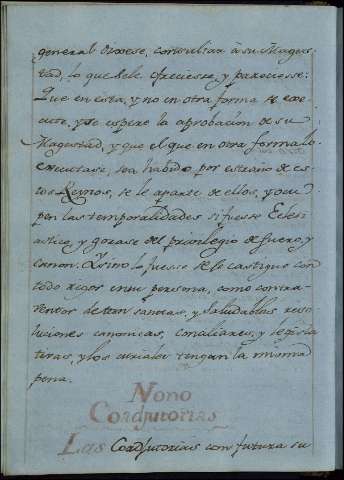 general Dioxese, consultar â su Mages-
tad, lo que sele ofreciesse, y pareciesse:
Que en esta, y no en otra forma se exe-
cute, y se espere la aprobacion de su
Magestad, y que el que en otra forma lo
executase, sea habido por estraño de es-
tos Reinos, se le aparte de ellos, y ocu-
pen las temporalidades si fuesse Ecles-
iastico, y gozase del privilegio de fuero, y
canon. Y sino lo fuesse se le castigue con
todo rigor en su persona, como contra-
ventor de tan santas, y saludables reso-
luciones canonicas, conciliares, y legisla-
turas, y los curiales tengan la misma
pena.
Nono
Coadjutorias
Las Coadjutorias con futura su